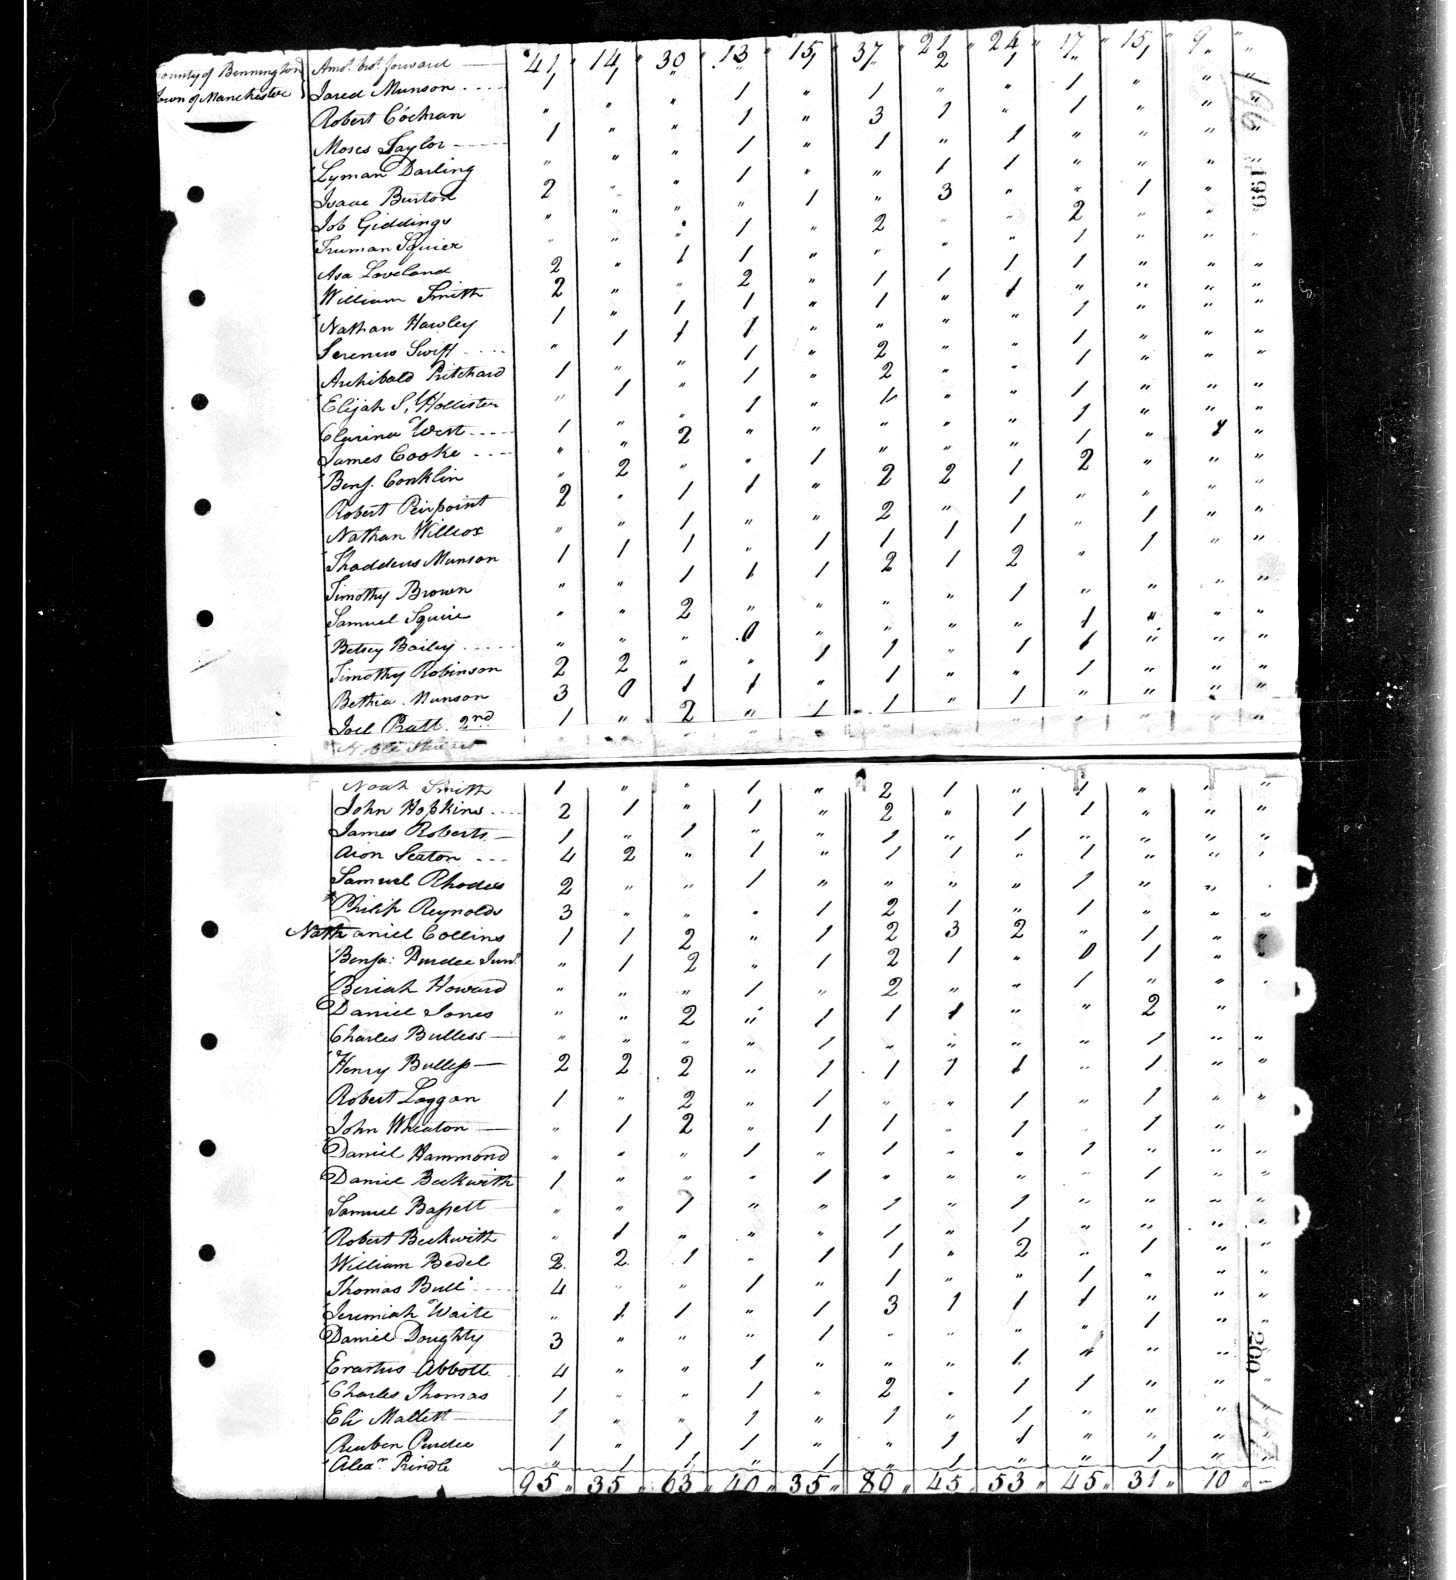 County of Bennington Amt. bro't. forward 41 14 30 13 15 37 21 2 24 17 15 9 "
Town of Manchester Jared Munson 1 " " 1 " 1 " " 1 " " "
Robert Cochran " " " 1 " 3 1 " 1 " " "
Moses Taylor 1 " " 1 " 1 " 1 " " " "
Lyman Darling " " " 1 " " 1 1 " " " "
Isaac Burton 2 " " " 1 " 3 " " 1 " "
Job Giddings " " " 1 " 2 " " 2 " " "
Truman Squier " " 1 1 " " " " 1 " " "
Asa Loveland 2 " " 2 " 1 1 1 1 " " "
William Smith 2 " 1 1 " 1 " 1 " " " "
Nathan Hawley 1 " 1 1 " " " " 1 " " "
Serenus Swift " 1 " 1 " 2 " " 1 " " "
Archibald Pritchard 1 " " 1 " 2 " " 1 " " "
Elijah S. Hollister " 1 " 1 " 1 " " 1 " " "
Clarina West 1 " 2 " " " " " 1 " " "
James Cooke " " " " 1 " " " 1 " "
Benj. Conklin " 2 " 1 " 2 2 1 2 " " "
Robert Peirpoint 2 " 1 " " 2 " 1 " " " "
Nathan Willcox " " 1 " 1 1 1 1 " 1 " "
Thaddeus Munson 1 1 1 1 1 2 1 2 " 1 " "
Timothy Brown " " 2 " " " " 1 " " " "
Samuel Squire " " " 0 " " " " 1 " " "
Betsey Bailey " " " " 1 1 " 1 1 " " "
Timothy Robinson 2 2 1 1 " 1 " " 1 " " "
Bethia Munson 3 0 2 " 1 1 " 1 " " " "
Joel Pratt 2nd 1 " " " " " " " " " " "
Noah Smith 1 " " 1 " 2 1 " 1 " " "
John Hopkins 2 1 " 1 " 2 " 1 1 " " "
James Roberts 1 " 1 " " 1 " 1 " " " "
Aron Seaton 4 2 " 1 " 1 1 " 1 " " "
Samuel Rhodes 2 " " 1 " " " " 1 " "
Philip Reynolds 3 " " " 1 2 1 " 1 " " "
Nathaniell Collins 1 1 2 " 1 2 3 2 " 1 " "
Benja: Purdee Junr. " 1 2 " 1 2 1 " 0 1 "
Beriah Howard " " " 1 " 2 " " 1 " "
Daniel Jones " " 2 " 1 1 1 " " 2 "
Charles Bulless " " " " 1 " " " " 1 " "
Henry Bulless 2 2 2 " 1 1 1 1 " 1 " "
Robert Loggan 1 " 2 " 1 " " 1 " 1 " "
John Wheaton " 1 2 " 1 1 " 1 " 1 " "
Daniel Hammond " " " 1 " 1 " " 1 " " "
Daniel Beckwith 1 " " " 1 " " " " 1 " "
Samuel Bassett " " 1 " " 1 " 1 " " " "
Robert Beckwith " 1 " " " 1 " 1 " " " "
William Bedel 2 2 1 " 1 1 " 2 " 1 " "
Thomas Bull 4 " " 1 " 1 " " 1 " " "
Jeremiah Waite " 1 1 " 1 3 1 1 1 " " "
Daniel Doughty 3 " " " 1 " " " " 1 " "
Erastus Abbott 4 " " 1 " " " 1 " " " "
Charles Thomas 1 " " 1 " 2 " 1 1 " " "
Eli Mallett 1 " " 1 " 1 " 1 " " " "
Reuben Purdee 1 " 1 1 " " 1 1 " " " "
Alexr. Prindle " 1 1 " 1 " 1 " " 1 " "
95 " 35 " 63 " 40 " 35 " 89 " 45 " 53 " 45 " 31 " 10 "
196
199
200